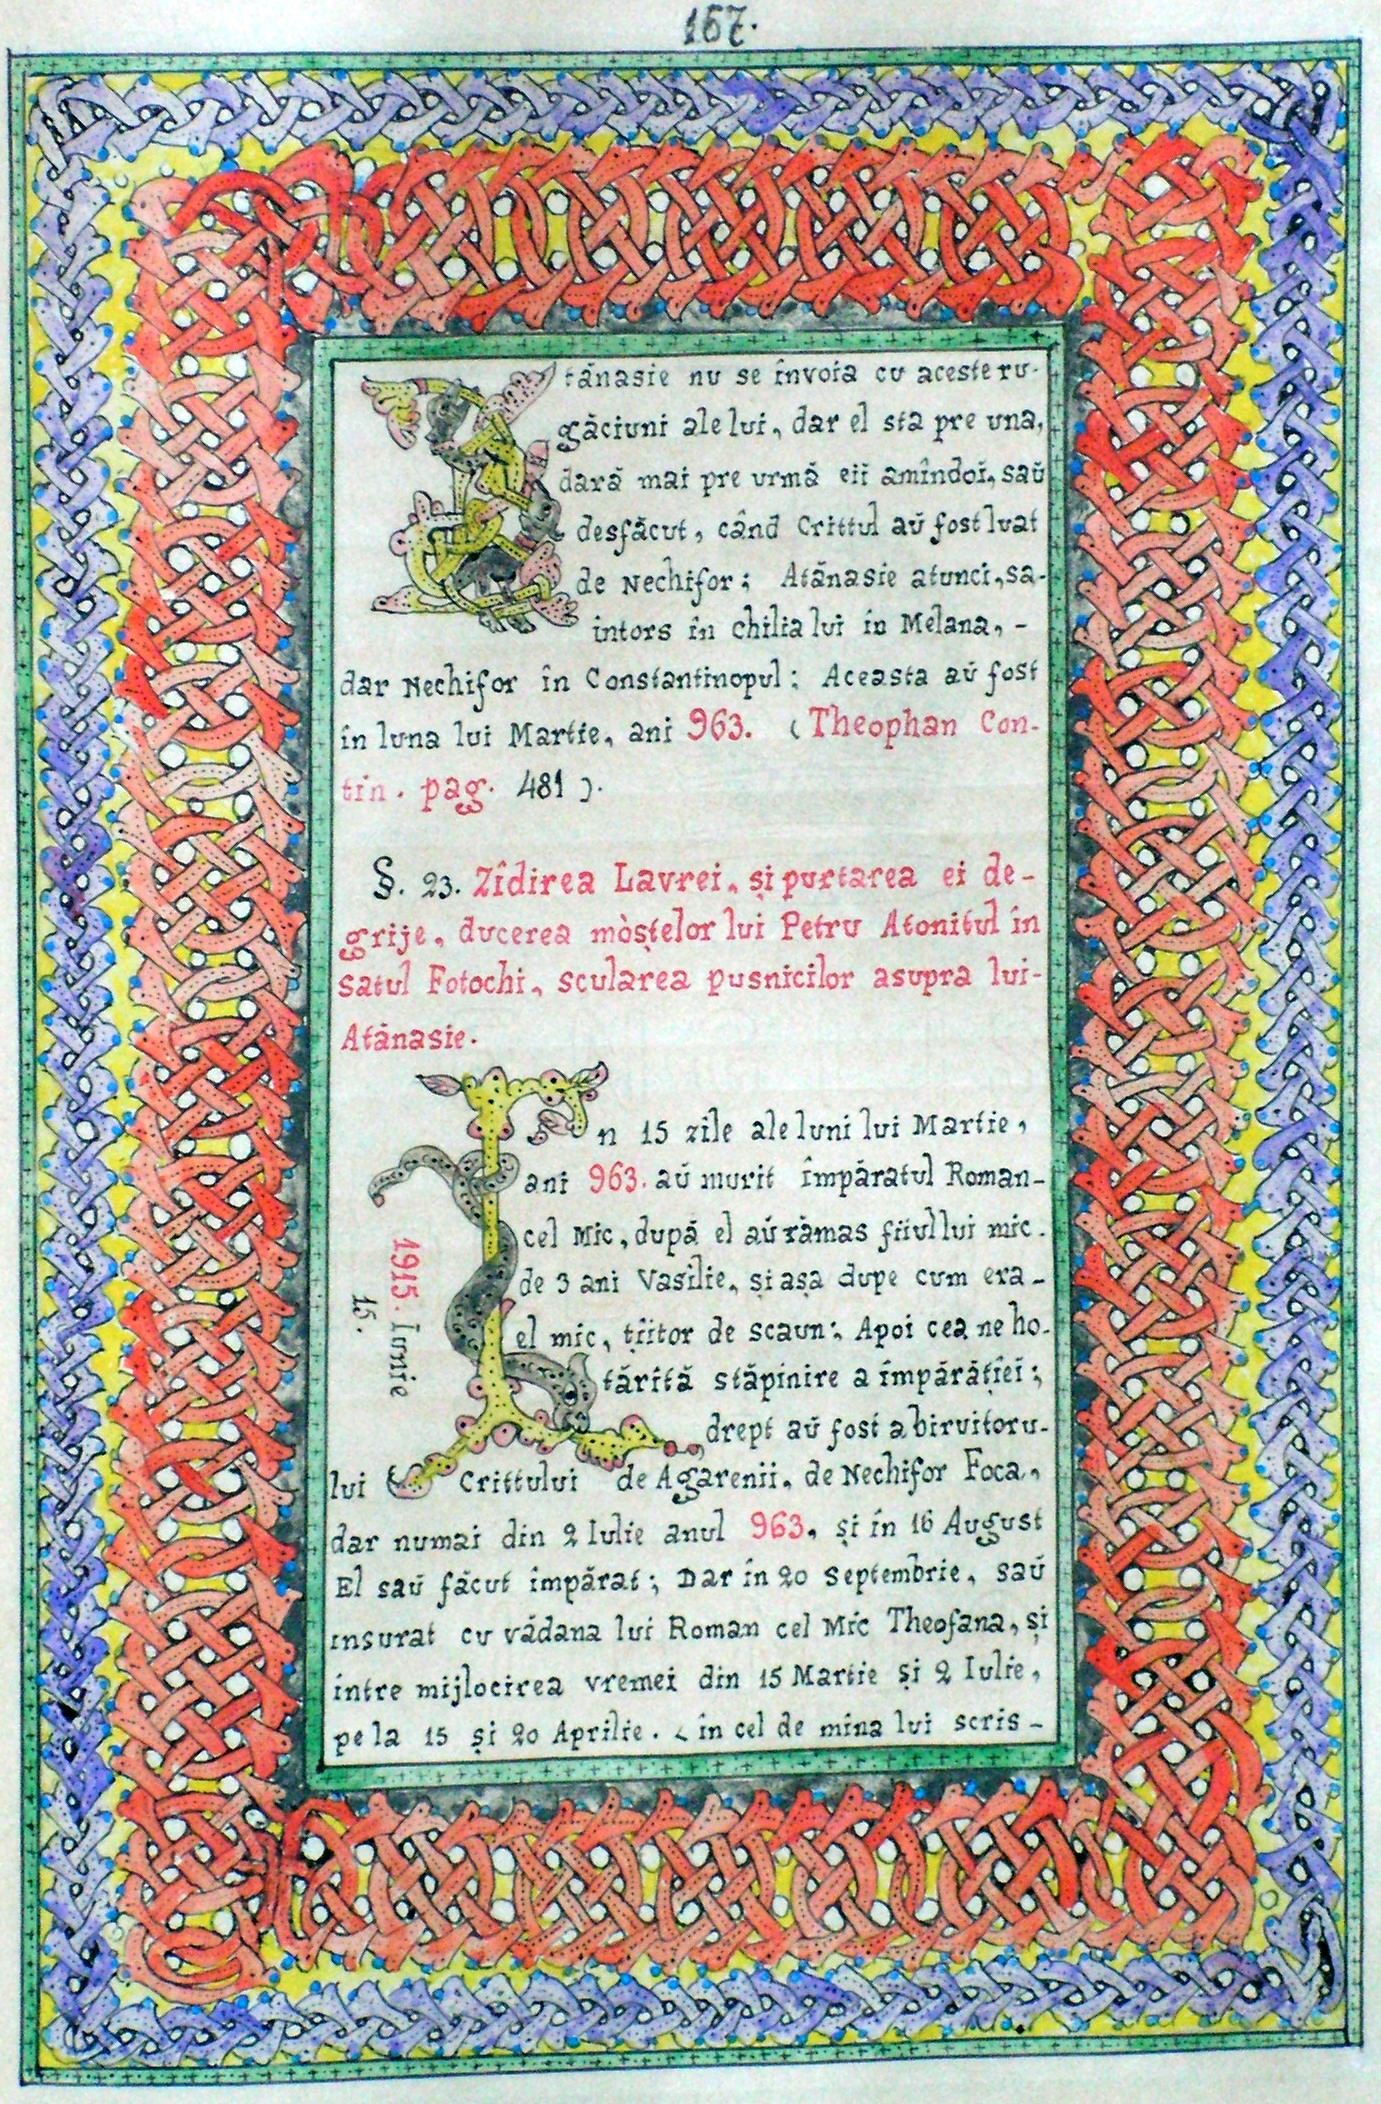 167.
Atănasie nu se învoia cu aceste ru-
găciuni ale lui, dar el sta pre una,
dară mai pre urmă eii amîndoi, saŭ
desfăcut, când Crittul aŭ fost luat
de Nechifor; Atănasie atunci, sa-
intors în chilia lui în Melana, -
dar Nechifor în Constantinopul; Aceasta aŭ fost
în luna lui Martie, ani 963. (Theophan Con-
tin. pag. 481).
§. 23. Zîdirea Lavrei, și purtarea ei de-
grije, ducerea mòștelor lui Petru Atonitul în
satul Fotochi, scularea pusnicilor asupra lui-
Atănasie.
În 15 zile ale luni lui Martie,
ani 963. aŭ murit împăratul Roman-
cel Mic, după el aŭ rămas fiiul lui mic.
de 3 ani Vasilie, și așa dupe cum era -
el mic, țiitor de scaun; Apoi cea ne ho-
tărîtă stăpinire a împărăției;
drept aŭ fost a biruitoru-
lui Crittului de Agarenii, de Nechifor Foca,
dar numai din 2 Iulie anul 963, și în 16 August
El saŭ făcut împărat; Dar în 20 Septembrie, saŭ
insurat cu vădana lui Roman cel Mic Theofana, și
intre mijlocirea vremei din 15 Martie și 2 Iulie,
pe la 15 și 20 Aprilie. (în cel de mîna lui scris -
1915. Iunie
15.